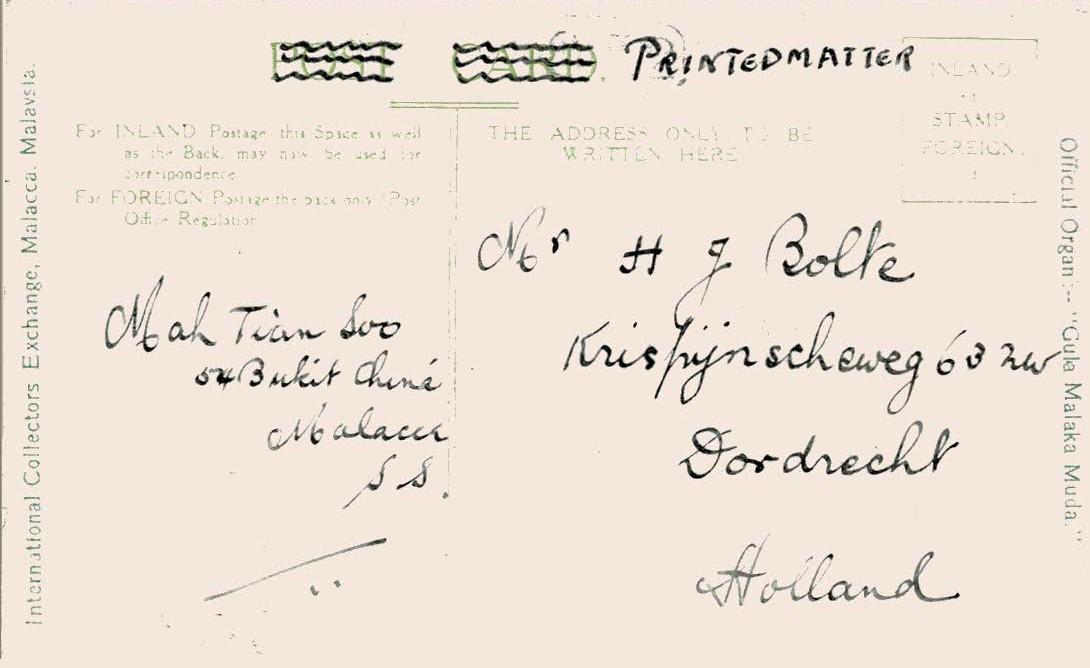 POST CARD. PRINTEDMATTER
For INLAND Postage this Space as well
as the Back, may now be used for
correspondence
For FOREIGN Postage the back only (Post
Office Regulation
THE ADDRESS ONLY TO BE
WRITTEN HERE
INLAND
STAMP
FOREIGN
International Collectors Exchange, Malacca. Malaysia.
Mah Tian Soo
54 Bukit China
Malacca
S.S.
Mr H J Bolte
Krispijnscheweg 63 zw
Dordrecht
Holland
Official Organ:-- "Gula Malaka Muda."